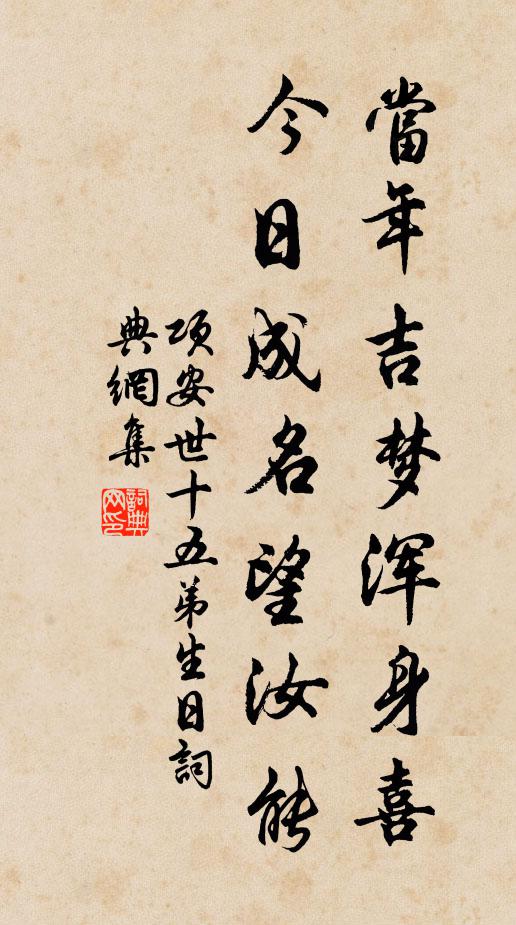 當年吉梦浑身喜
今日成名望汝能
项安世十五弟生日詞
典網集
詞典网印